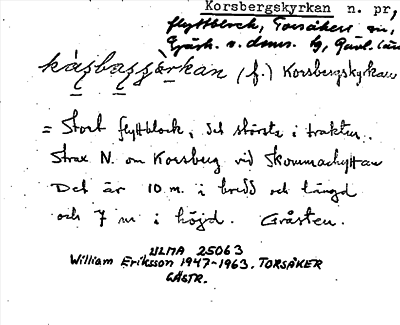 Korsbergskyrkan n. pr,
flyttblock, Torsåkers sn,
Gästr. ö. doms. hg, Gävl. län
kåsbassjärkan (f.) Korsbergskyrkan
= Stort flyttblock, det största i trakten.
Strax N. om Korsberg vid Skommarhyttan
Det är 10 m. i bredd och längd
och 7 m i höjd. Gråsten.
ULMA 25063
William Eriksson 1947-1963. TORSÅKER
GÄSTR.